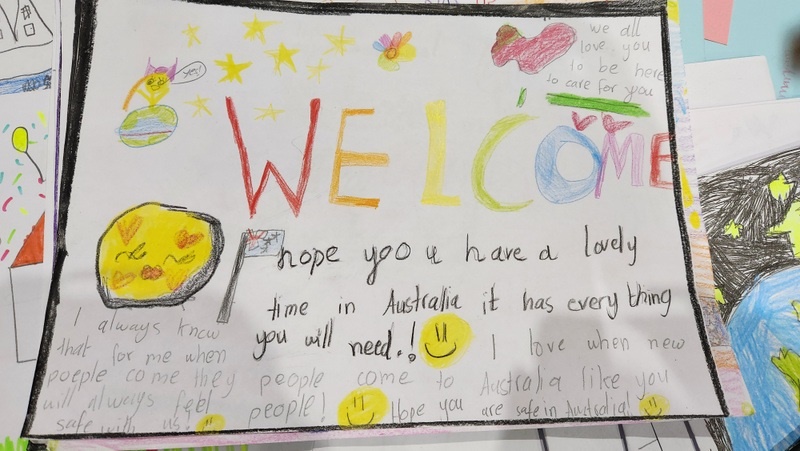 yes!
we all
love you
to be here
to care for you
WELCOME
hope yoo u have a lovely
time in Australia it has every thing
you will need.!
I love when new
people come to Australia like you
people!
Hope you are safe in Australia!
I always know
that for me when
poeple come they
will always feel
safe with us!